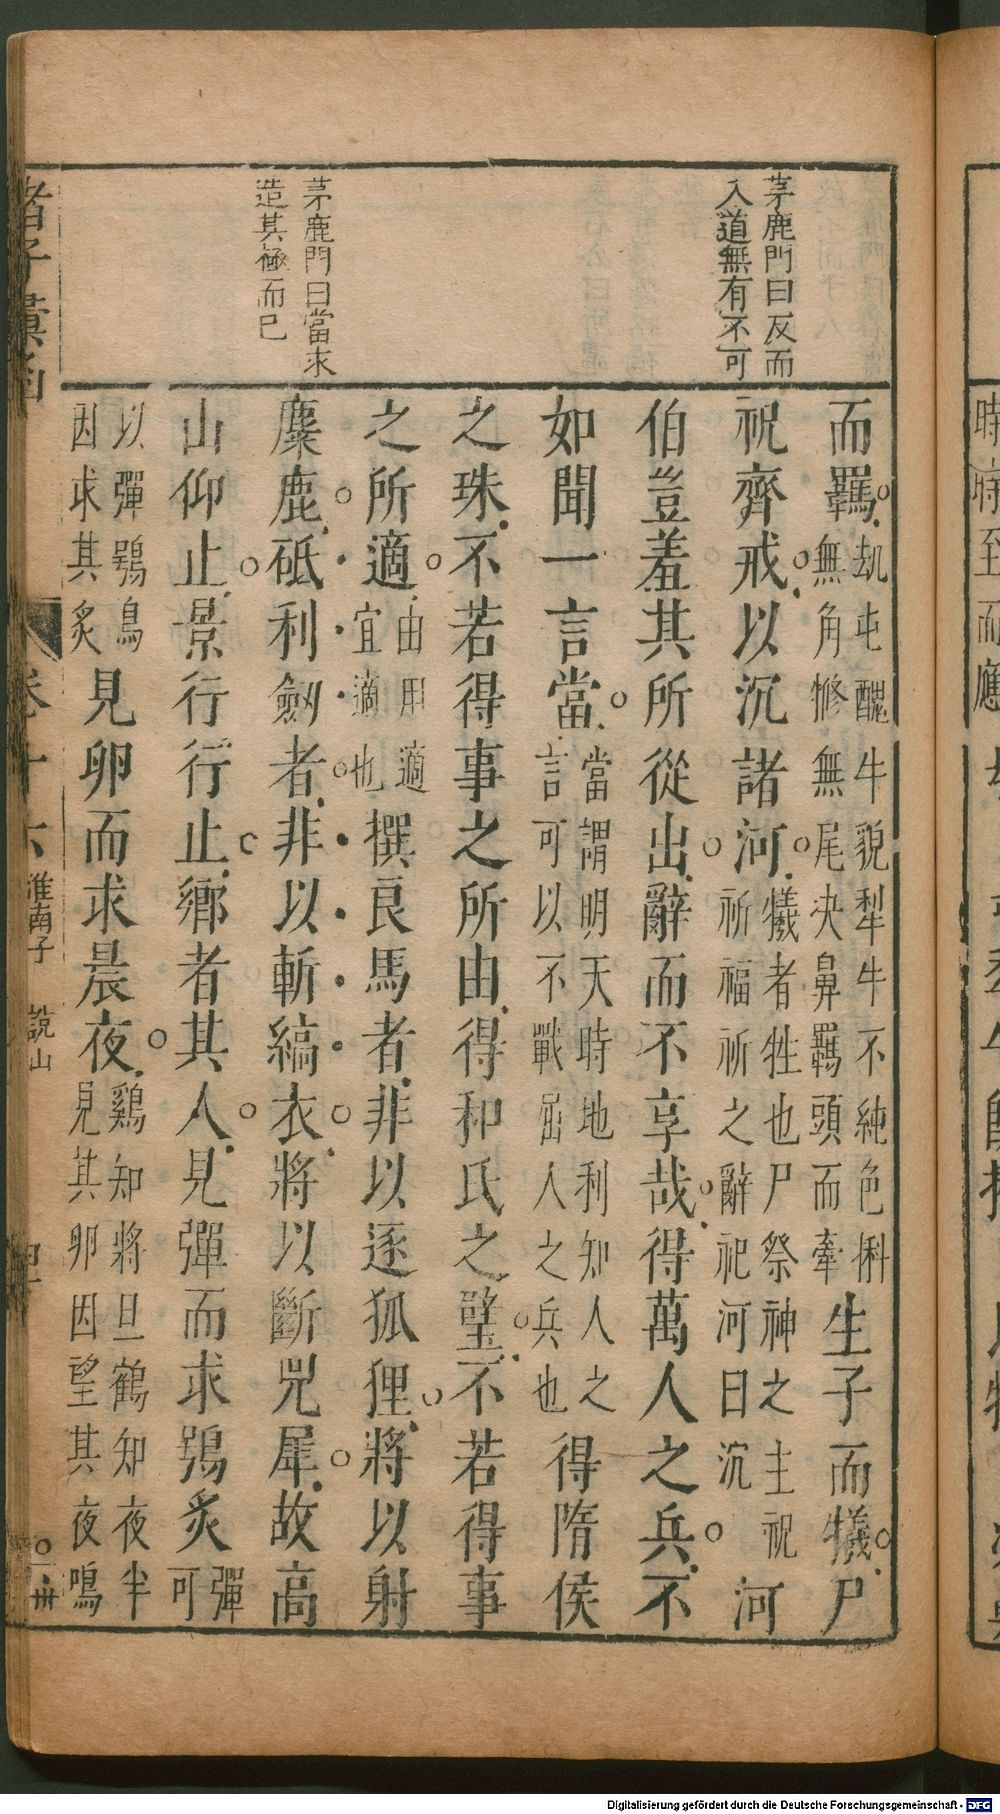 茅鹿門曰反而
入道無有不可
茅鹿門曰當求
造其極而已
而羈劫屯醜牛貌犁牛不純色犐
無角犐無尾決鼻羈頭而牽生子而犧尸
祝齊戒以沉諸河犧者牲也尸祭神之主祝
祈福祈之辭祀河曰沉河
伯豈羞其所從出辭而不享哉得萬人之兵不
如聞一言當當謂明天時地利知人之
言可以不戰屈人之兵也得隋侯
之珠不若得事之所由得和氏之璧不若得事
之所適由用適
宜適也撰良馬者非以逐狐狸將以射
麋鹿砥利劔者非以斬縞衣將以斷兕犀故高
山仰止景行行止鄉者其人見彈而求鴞炙彈
可
以彈鴞鳥
因求其炙見卵而求晨夜鷄知將旦鶴知夜半
見其卵因望其夜鳴
諸子彙函
卷十六
淮南子
說山